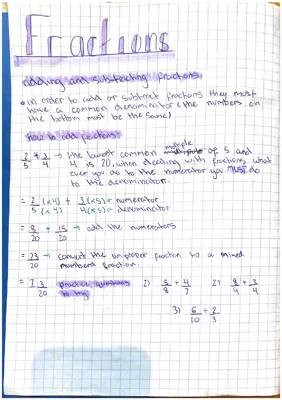 Fractions
adding and subtracting fractions
• in order to add or subtract fractions they must
have a common denominator (the numbers on
the bottom must be the same)
how to add fractions
2/5 + 3/4 → the lowest common multiple of 5 and
4 is 20, when dealing with fractions what
ever you do to the numerator you MUST do
to the denominator.
= 2/5 (x4)/(x4) + 3 (x5)/4 (x5) = numerator / = denominator
= 8/20 + 15/20 → add the numerators
= 23/20 → convert the improper fraction to a mixed
numbered fraction.
= 1 3/20 practice questions to try 1) 5/8 + 4/7 2) 8/4 + 3/4
3) 6/10 + 2/3